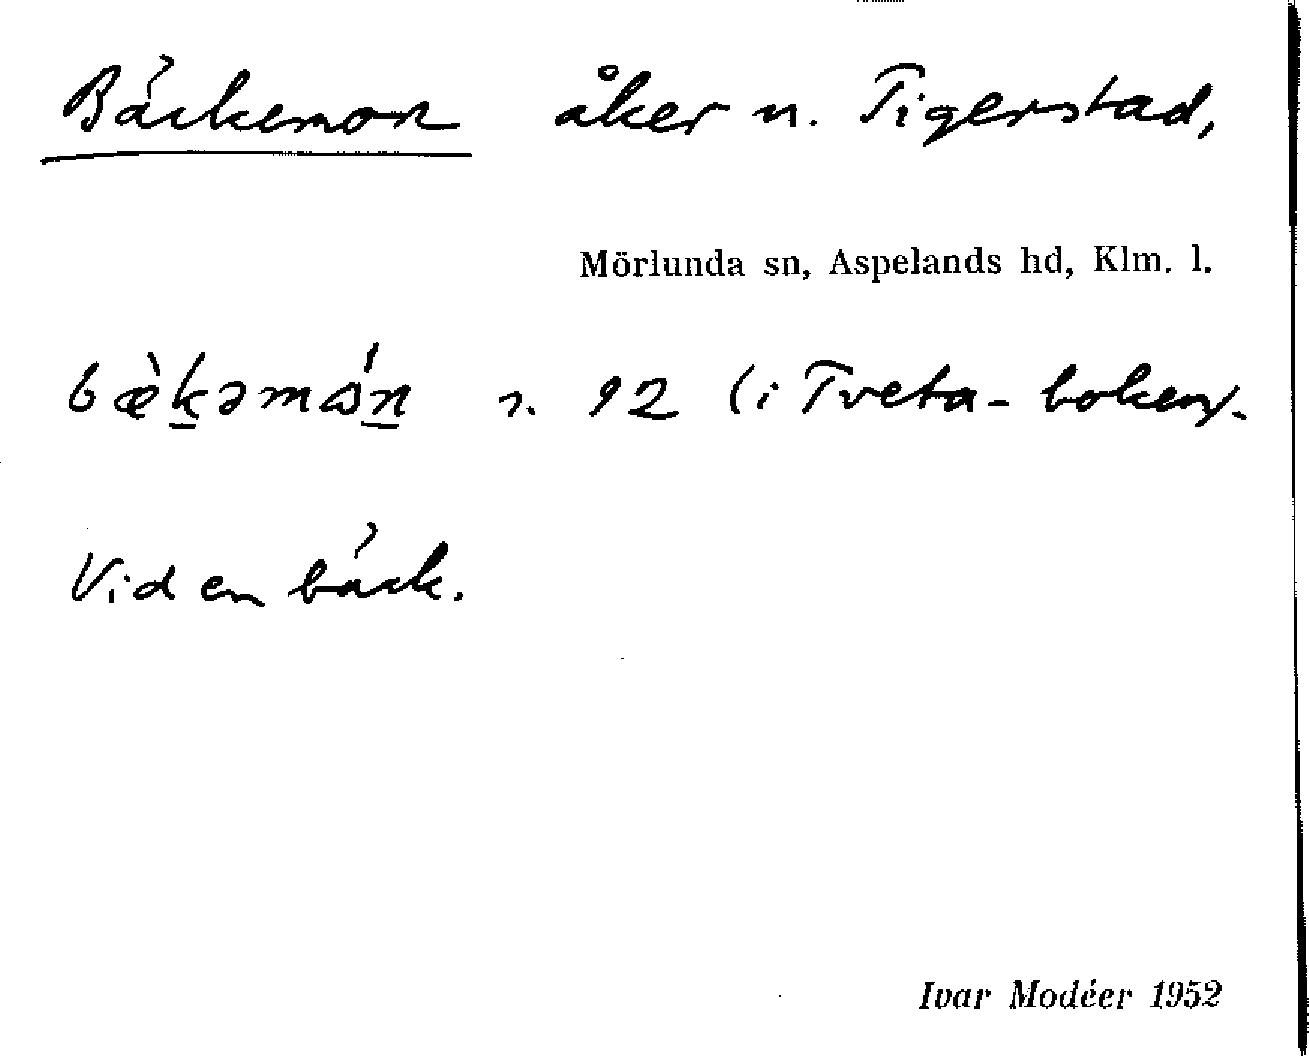 Bäckemon åker n. Tigerstad,
Mörlunda sn, Aspelands hd, Klm. l.
bæ̀k̲əmɷ́n̲ s. 92 (i Tveta-boken).
Vid en bäck.
Ivar Modéer 1952